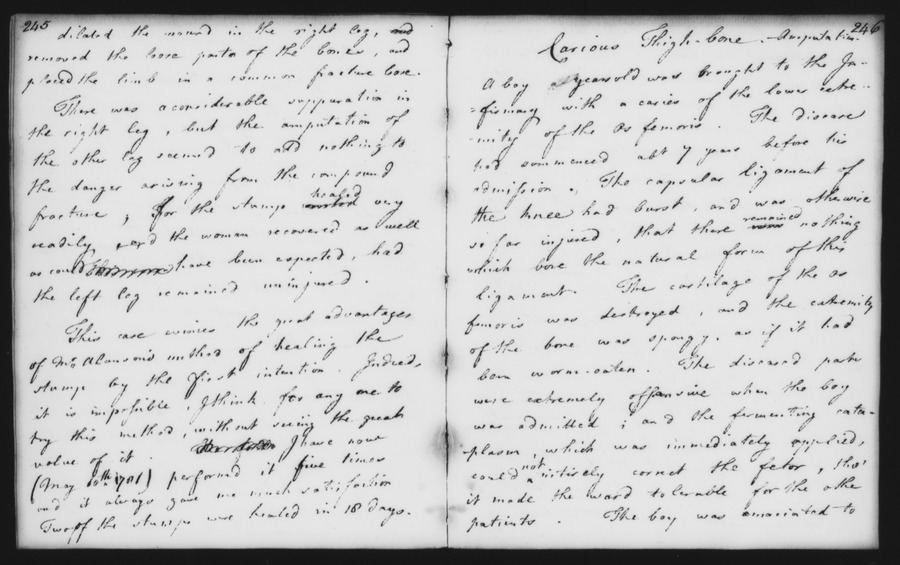 245
dilated the wound in the right leg, and
removed the loose parts of the bones, and
placed the limb in a common fracture box.
There was a considerable suppuration in
the right leg, but the amputation of
the other leg seemed to add nothing to
the danger arising from the compound
fracture; for the stump healed very
readily, and the woman recovered as well
as could have been expected, had
the left leg remained uninjured.
This case evinces the great advantages
of Mr. Alanson's method of healing the
stump by the first intention. Indeed,
it is impossible, I think, for any one to
try this method, without seeing the great
value of it. I have now
(May 1781) performed it five times
and it always gave me much satisfaction
Two of the stumps were healed in 18 days.
246
Carious Thigh-bone - Amputation.
A boy years old was brought to the In-
=firmary with a caries of the lower extre-
-mity of the Os femoris. The disease
had commenced abt 7 years before his
admission. The capsular ligament of
the knee had burst, and was otherwise
so far injured, that there remained nothing
which bore the natural form of this
ligament. The cartilage of the os
femoris was destroyed, and the extremity
of the bone was spongy, as if it had
been worm-eaten. The diseased parts
were extremely offensive when the boy
was admitted; and the fermenting cata-
-plasm, which was immediately applied,
could not intirely correct the fetor, tho'
it made the ward tolerable for the othe
patients. The boy was emaciated to